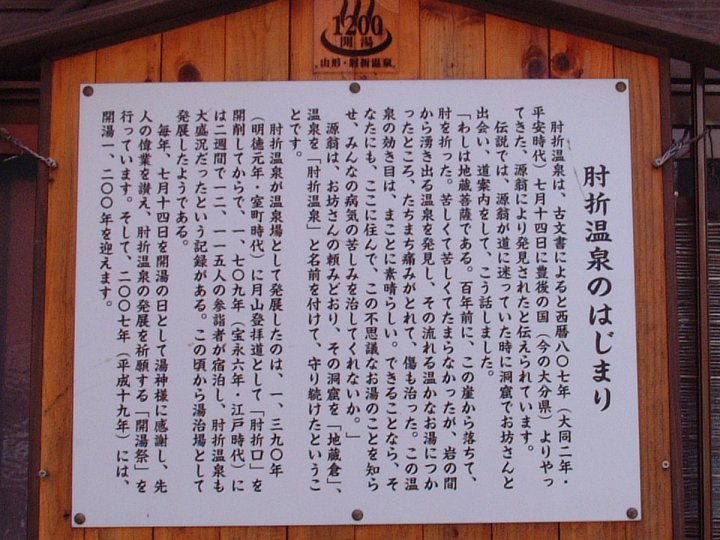 1200
開湯
山形・肘折温泉
肘折温泉のはじまり
肘折温泉は、古文書によると西暦八〇七年（大同二年・
平安時代）七月十四日に豊後の国（今の大分県）よりやっ
てきた、源翁により発見されたと伝えられています。
伝説では、源翁が道に迷っていた時に洞窟でお坊さんと
出会い、道案内をして、こう話しました。
「わしは地蔵菩薩である。百年前に、この崖から落ちて、
肘を折った。苦しくて苦しくてたまらなかったが、岩の間
から湧き出る温泉を発見し、その流れる温かなお湯につか
ったところ、たちまち痛みがとれて、傷も治った。この温
泉の効き目は、まことに素晴らしい。できることなら、そ
なたにも、ここに住んで、この不思議なお湯のことを知ら
せ、みんなの病気の苦しみを治してくれないか。」
源翁は、お坊さんの頼みどおり、その洞窟を「地蔵倉」、
温泉を「肘折温泉」と名前を付けて、守り続けたというこ
とです。
肘折温泉が温泉場として発展したのは、一、三九〇年
（明徳元年・室町時代）に月山登拝道として「肘折口」を
開削してからで、一、七〇九年（宝永六年・江戸時代）に
は二週間で一二、一一五人の参詣者が宿泊し、肘折温泉も
大盛況だったという記録がある。この頃から湯治場として
発展したようである。
毎年、七月十四日を開湯の日として湯神様に感謝し、先
人の偉業を讃え、肘折温泉の発展を祈願する「開湯祭」を
行っています。そして、二〇〇七年（平成十九年）には、
開湯一、二〇〇年を迎えます。